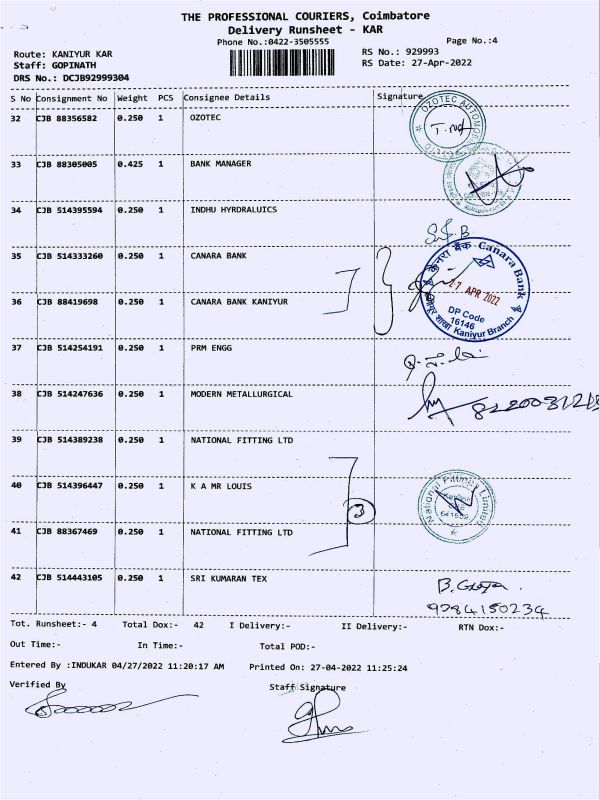 THE PROFESSIONAL COURIERS, Coimbatore
Delivery Runsheet - KAR
Phone No.:0422-3505555 Page No.:4
Route: KANIYUR KAR RS No.: 929993
Staff: GOPINATH RS Date: 27-Apr-2022
DRS No.: DCJB92999304
S No Consignment No Weight PCS Consignee Details Signature
32 CJB 88356582 0.250 1 OZOTEC
OZOTEC AUTOMOBILE
33 CJB 88305005 0.425 1 BANK MANAGER
34 CJB 514395594 0.250 1 INDHU HYRDRALUICS
35 CJB 514333260 0.250 1 CANARA BANK
केनरा बैंक Canara Bank
27 APR 2022
36 CJB 88419698 0.250 1 CANARA BANK KANIYUR
DP Code
16146
Kaniyur Branch
37 CJB 514254191 0.250 1 PRM ENGG
38 CJB 514247636 0.250 1 MODERN METALLURGICAL
39 CJB 514389238 0.250 1 NATIONAL FITTING LTD
40 CJB 514396447 0.250 1 K A MR LOUIS
National Fittings Limited
3
41 CJB 88367469 0.250 1 NATIONAL FITTING LTD
42 CJB 514443105 0.250 1 SRI KUMARAN TEX
9284150234
Tot. Runsheet:- 4 Total Dox:- 42 I Delivery:- II Delivery:- RTN Dox:-
Out Time:- In Time:- Total POD:-
Entered By :INDUKAR 04/27/2022 11:20:17 AM Printed On: 27-04-2022 11:25:24
Verified By Staff Signature